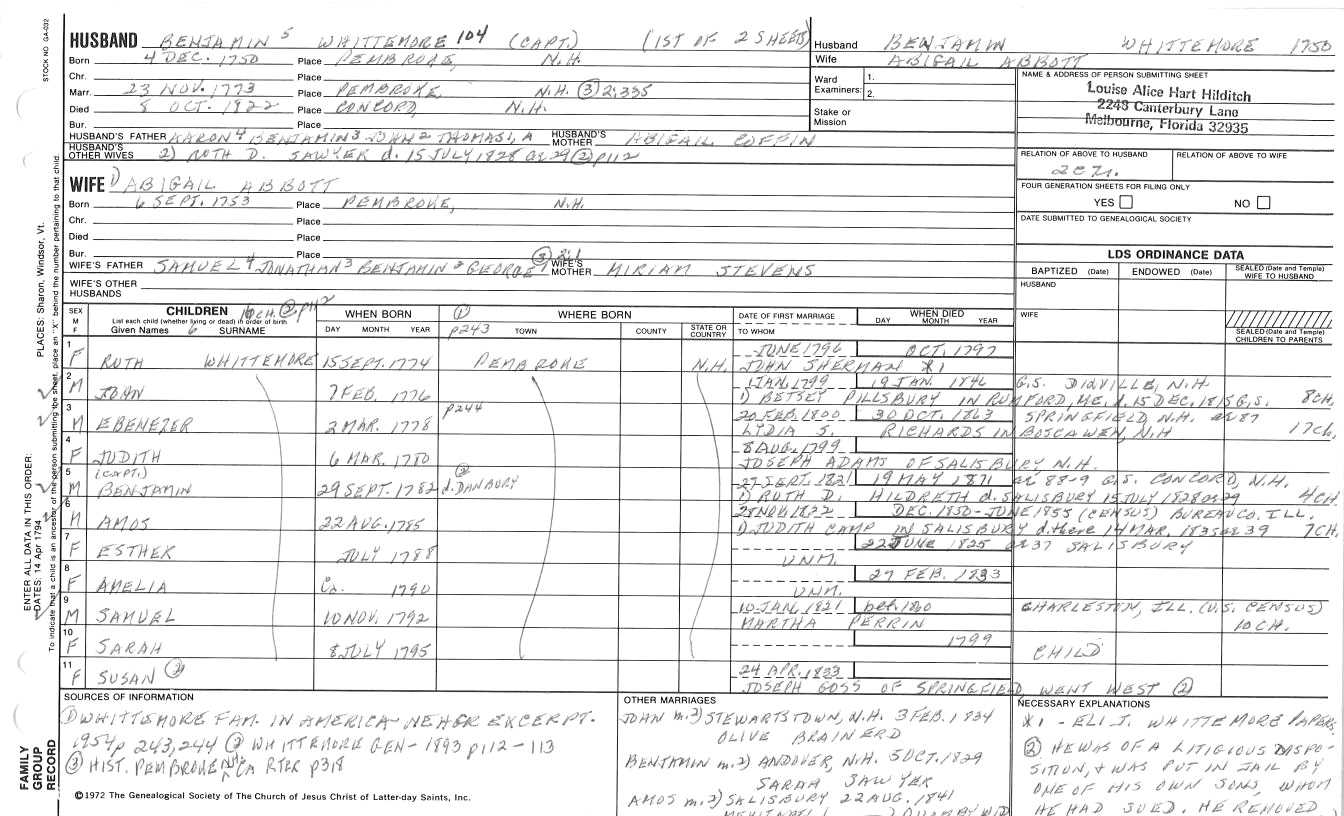 STOCK NO. GA-032
HUSBAND BENJAMIN 5 WHITTEMORE 104 (CAPT.) (1ST OF 2 SHEETS)
Born 4 DEC. 1750 Place PEMBROKE, N.H.
Chr. Place
Marr. 23 NOV. 1773 Place PEMBROKE, N.H. (3) 2:335
Died 8 OCT. 1822 Place CONCORD, N.H.
Bur. Place
HUSBAND'S FATHER AARON 4 BENJAMIN 3 JOHN 2 THOMAS 1, A HUSBAND'S MOTHER ABIGAIL COFFIN
HUSBAND'S OTHER WIVES 2) RUTH D. SAWYER d. 15 JULY 1828 ae 29 (2) p112
WIFE 1) ABIGAIL ABBOTT
Born 6 SEPT. 1753 Place PEMBROKE, N.H.
Chr. Place
Died Place
Bur. Place (3) 2:1
WIFE'S FATHER SAMUEL 4 JONATHAN 3 BENJAMIN 2 GEORGE 1 WIFE'S MOTHER MIRIAM STEVENS
WIFE'S OTHER HUSBANDS
Husband BENJAMIN WHITTEMORE 1750
Wife ABIGAIL ABBOTT
Ward Examiners: 1.
2.
Stake or Mission
NAME & ADDRESS OF PERSON SUBMITTING SHEET
Louise Alice Hart Hilditch
2248 Canterbury Lane
Melbourne, Florida 32935
RELATION OF ABOVE TO HUSBAND RELATION OF ABOVE TO WIFE
FOUR GENERATION SHEETS FOR FILING ONLY
YES NO
DATE SUBMITTED TO GENEALOGICAL SOCIETY
LDS ORDINANCE DATA
BAPTIZED (Date) ENDOWED (Date) SEALED (Date and Temple) WIFE TO HUSBAND
HUSBAND
WIFE
SEALED (Date and Temple) CHILDREN TO PARENTS
SEX M F CHILDREN 10 CH. (2) p112
List each child (whether living or dead) in order of birth
Given Names 6 SURNAME
WHEN BORN DAY MONTH YEAR
(1) p243 WHERE BORN TOWN COUNTY STATE OR COUNTRY
DATE OF FIRST MARRIAGE TO WHOM
WHEN DIED DAY MONTH YEAR
1 F RUTH WHITTEMORE 15 SEPT. 1774 PEMBROKE N.H. JUNE 1796 OCT. 1797
JOHN SHERMAN X1
2 M JOHN 7 FEB. 1776 1 JAN. 1799 19 JAN. 1846 G.S. DIXVILLE, N.H.
1) BETSEY PILLSBURY IN RUMFORD, ME. d. 15 DEC. 1815 G.S. 8CH.
3 M EBENEZER 2 MAR. 1778 p244 20 FEB. 1800 30 OCT. 1863 SPRINGFIELD, N.H. ae 87
LYDIA S. RICHARDS IN BOSCAWEN, N.H 17CH.
4 F JUDITH 6 MAR. 1780 8 AUG. 1799
JOSEPH ADAMS OF SALISBURY, N.H.
5 M (CAPT.) BENJAMIN 29 SEPT. 1782 (2) d. DANBURY 27 SEPT. 1821 19 MAY 1871 ae 88-9 G.S. CONCORD, N.H.
1) RUTH D. HILDRETH d. SALISBURY 15 JULY 1828 ae 29 4CH.
6 M AMOS 22 AUG. 1785 28 NOV. 1822 DEC. 1850 - JUNE 1855 (CENSUS) BUREAU CO. ILL.
1) JUDITH CAMP IN SALISBURY d. there 14 MAR. 1835 ae 39 7CH.
7 F ESTHER JULY 1788 22 JUNE 1825 ae 37 SALISBURY
UNM.
8 F AMELIA Ca. 1790 27 FEB. 1833
UNM.
9 M SAMUEL 10 NOV. 1792 10 JAN. 1821 bet. 1860 CHARLESTON, ILL. (U.S. CENSUS)
MARTHA PERRIN 10 CH.
10 F SARAH 8 JULY 1795 1799 CHILD
11 F SUSAN (2) 24 APR. 1833
JOSEPH GOSS OF SPRINGFIELD, WENT WEST (2)
SOURCES OF INFORMATION
(1) WHITTEMORE FAM. IN AMERICA - NEHGR EXCERPT.
1954 p 243, 244 (2) WHITTEMORE GEN - 1893 p112 - 113
(3) HIST. PEMBROKE NH CARTER p318
©1972 The Genealogical Society of The Church of Jesus Christ of Latter-day Saints, Inc.
OTHER MARRIAGES
JOHN m. 2) STEWARTSTOWN, N.H. 3 FEB. 1834
OLIVE BRAINERD
BENJAMIN m. 2) ANDOVER, N.H. 5 OCT. 1829
SARAH SAWYER
AMOS m. 2) SALISBURY 22 AUG. 1841
NECESSARY EXPLANATIONS
X1 - ELI J. WHITTEMORE PAPERS
(2) HE WAS OF A LITIGIOUS DISPO-
SITION, & WAS PUT IN JAIL BY
ONE OF HIS OWN SONS, WHOM
HE HAD SUED. HE REMOVED
PLACES: Sharon, Windsor, Vt.
ENTER ALL DATA IN THIS ORDER:
DATES: 14 Apr 1794
To indicate that a child is an ancestor of the person submitting the sheet, place an "X" behind the number pertaining to that child.
FAMILY GROUP RECORD